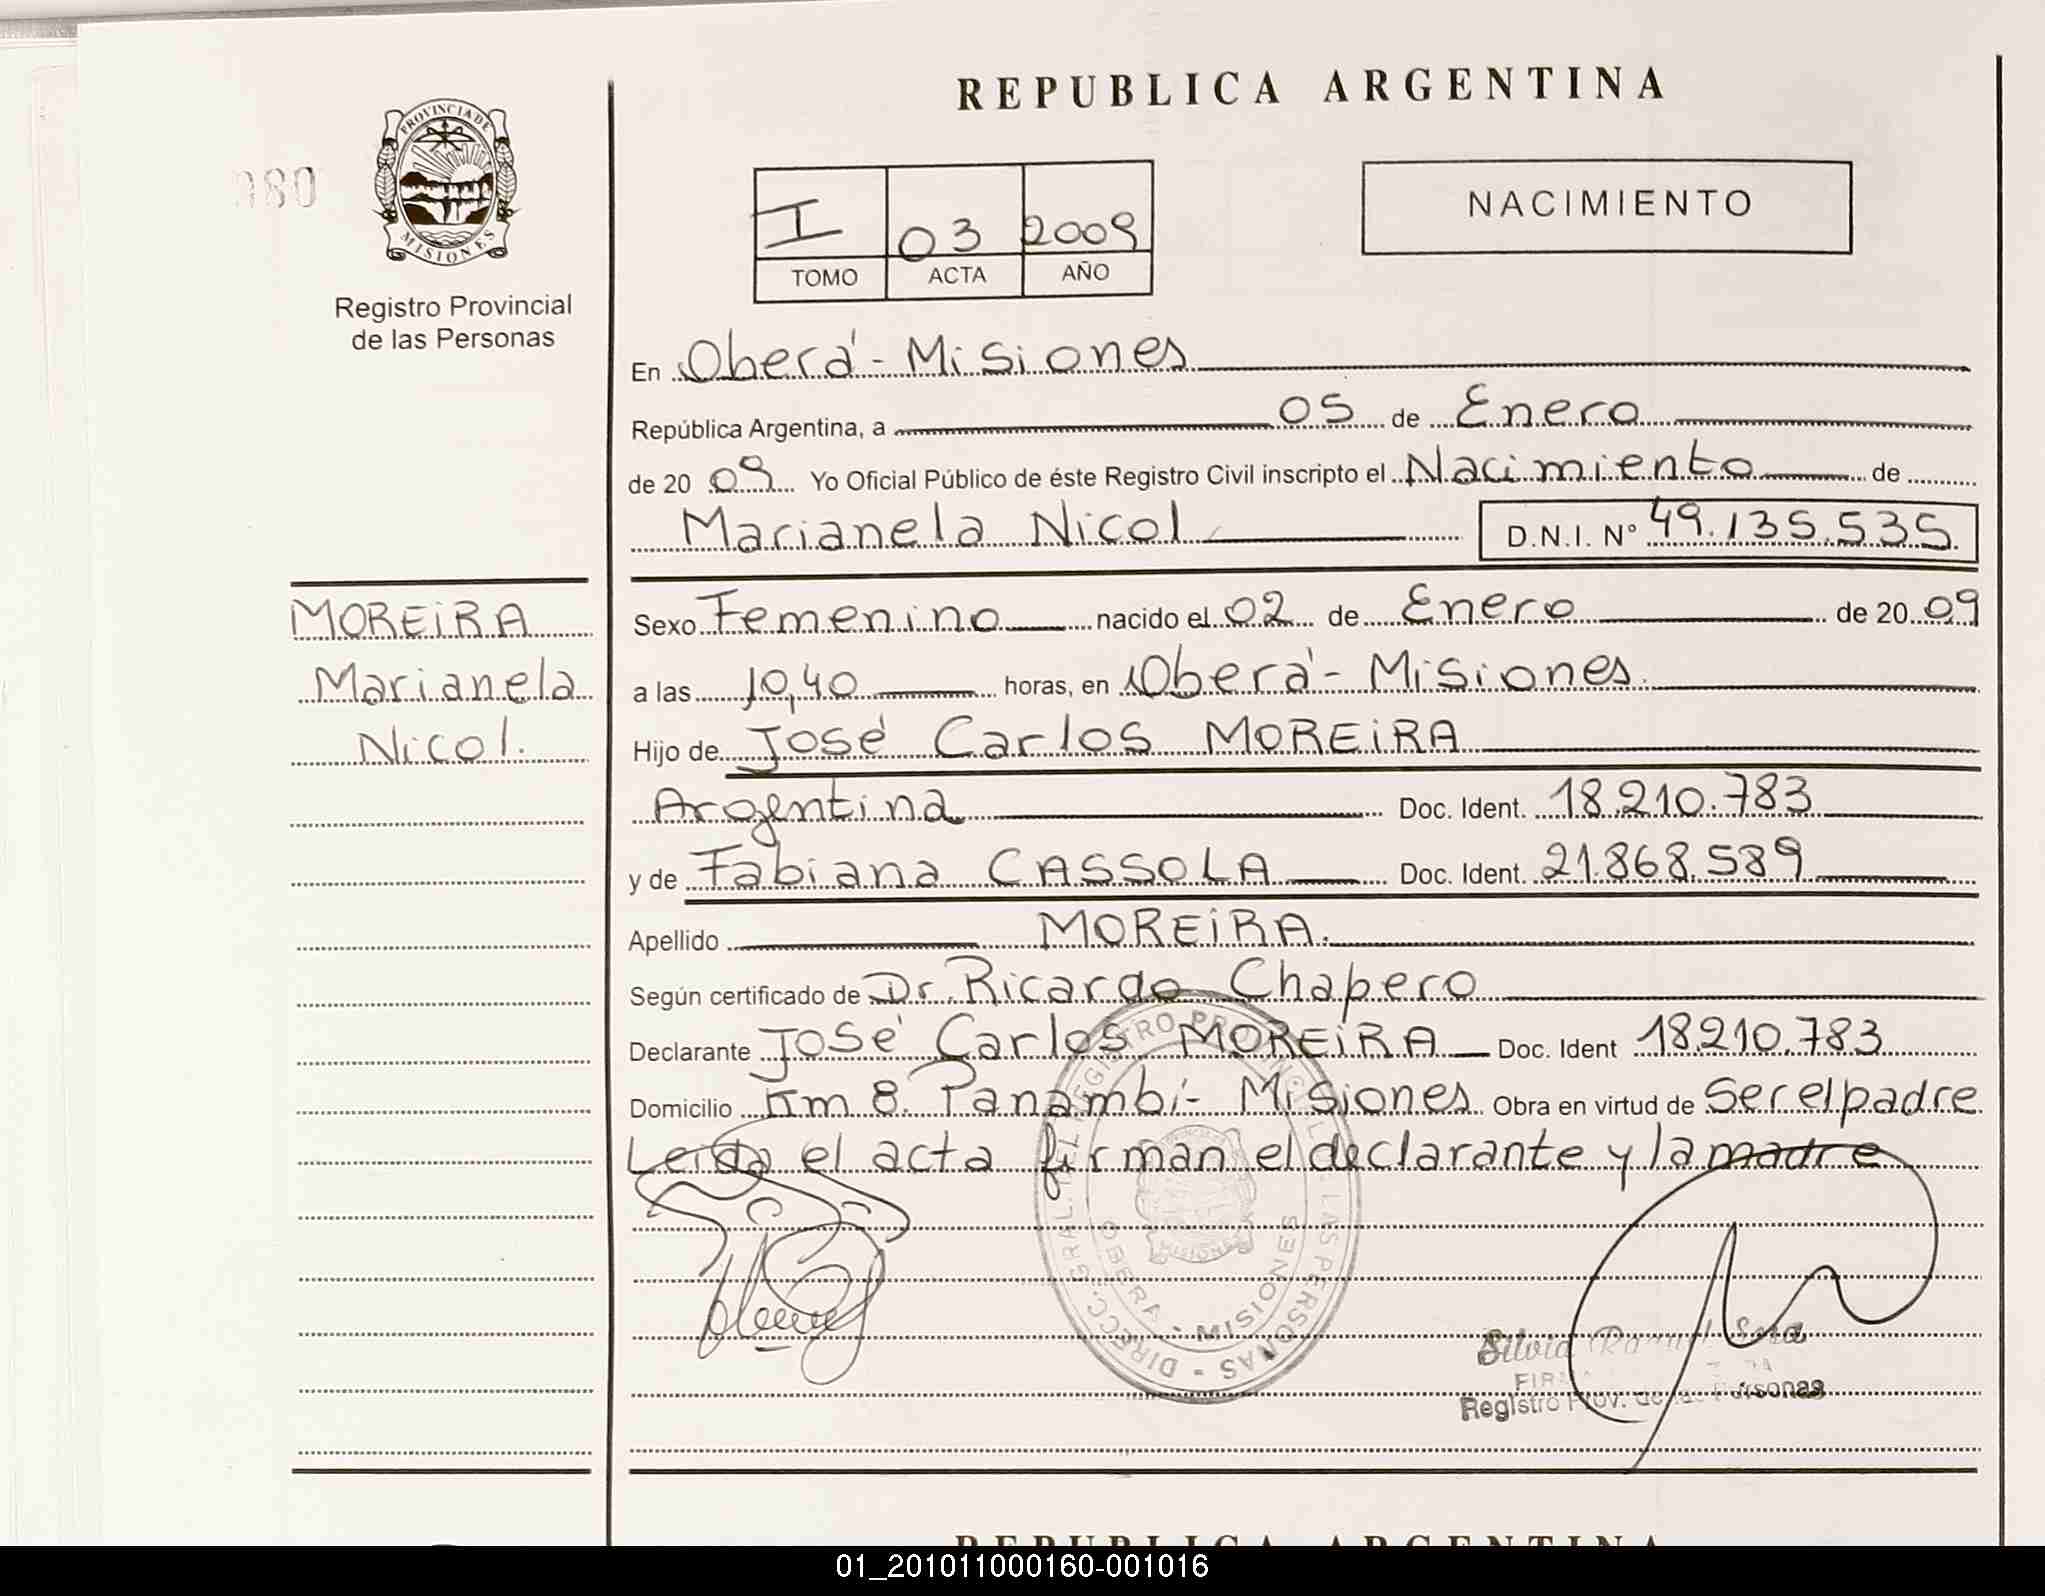 REPUBLICA ARGENTINA
PROVINCIA DE
MISIONES
080
Registro Provincial
de las Personas
I 03 2009
TOMO ACTA AÑO
NACIMIENTO
En Oberá - Misiones
República Argentina, a 05 de Enero
de 2009 Yo Oficial Público de éste Registro Civil inscripto el Nacimiento de
Marianela Nicol D.N.I. Nº 49.135.535
MOREIRA
Marianela
Nicol.
Sexo Femenino nacido el 02 de Enero de 2009
a las 10,40 horas, en Oberá - Misiones.
Hijo de José Carlos MOREIRA
Argentina Doc. Ident. 18.210.783
y de Fabiana CASSOLA Doc. Ident. 21.868.589
Apellido MOREIRA.
Según certificado de Dr. Ricardo Chapero
Declarante José Carlos MOREIRA Doc. Ident 18.210.783
Domicilio Km 8. Panambí - Misiones Obra en virtud de Ser el padre
Leída el acta firman el declarante y la madre
DIRECC. GRAL. DEL REGISTRO PROVINCIAL DE LAS PERSONAS
OBERA - MISIONES
MISIONES
Silvia
Registro Prov. de las Personas
REPUBLICA ARGENTINA
01_201011000160-001016